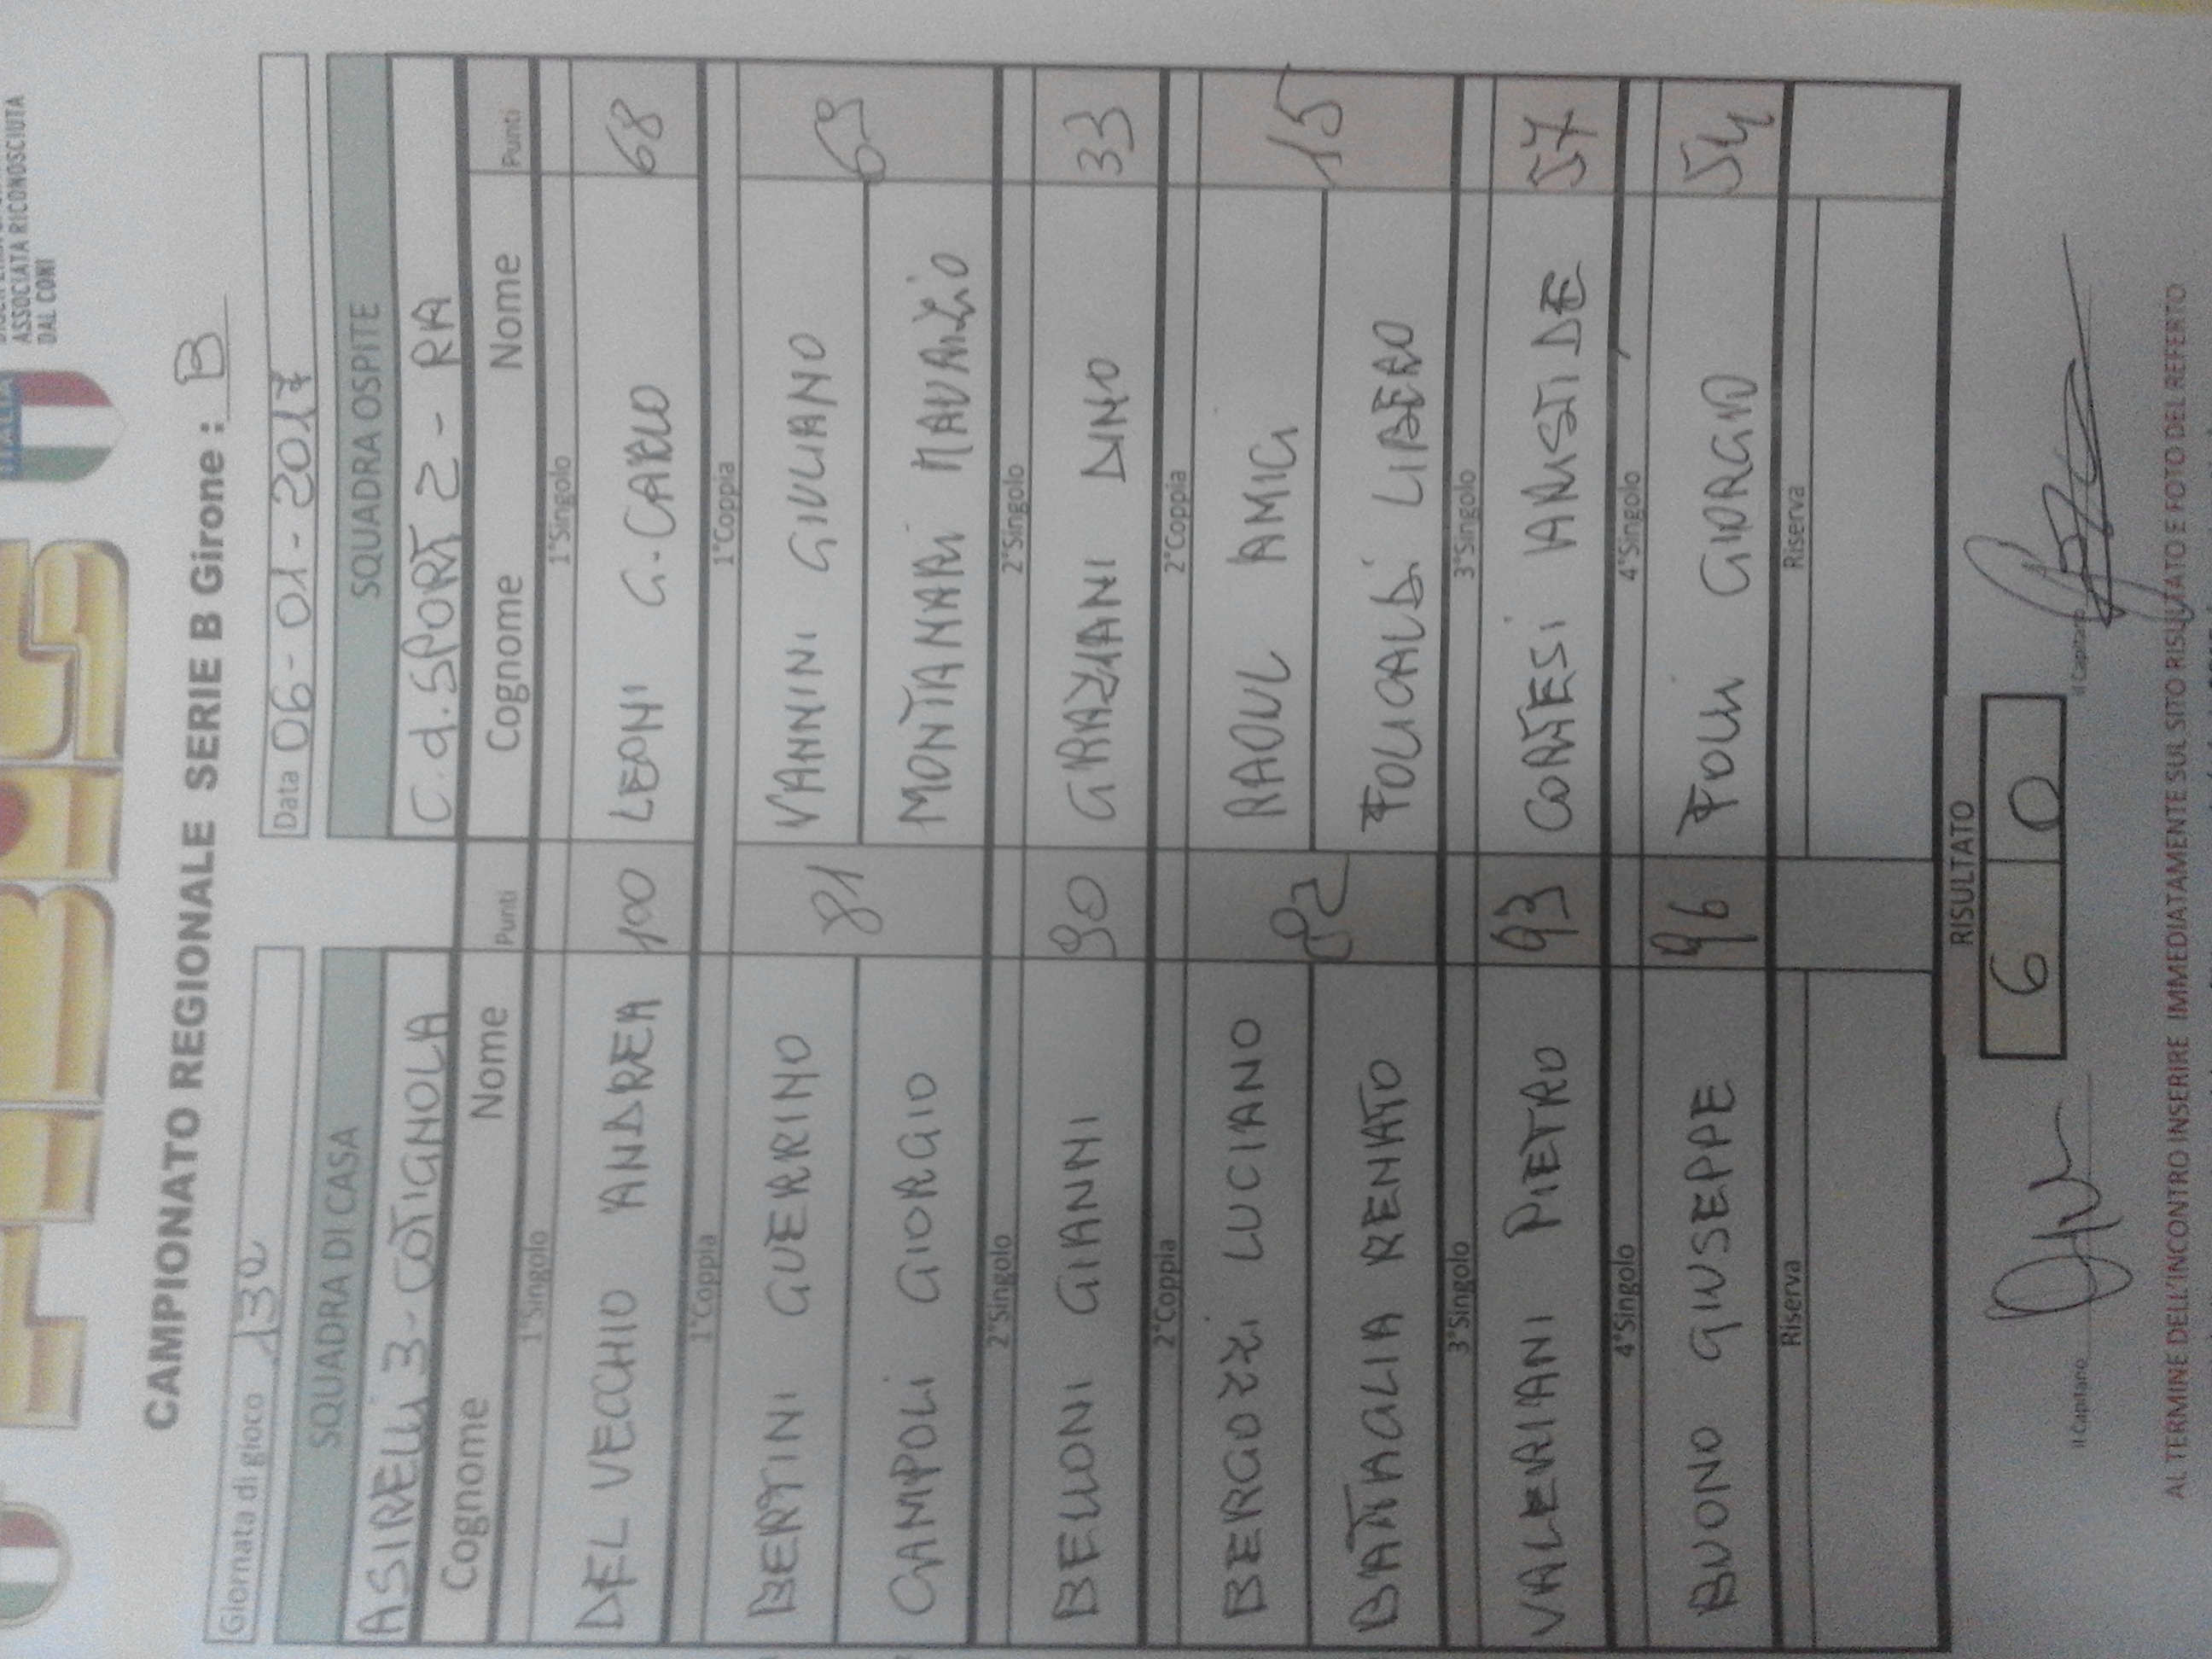 ASSOCIATA RICONOSCIUTA
DAL CONI
ITALIA
CAMPIONATO REGIONALE SERIE B Girone : B
Giornata di gioco 13ª
Data 06-01-2017
SQUADRA DI CASA SQUADRA OSPITE
ASIRELLI 3-COTIGNOLA C.d.SPORT 2 - RA
Cognome Nome Punti Cognome Nome Punti
1°Singolo 1°Singolo
DEL VECCHIO ANDREA 100 LEONI G.CARLO 68
1°Coppia 1°Coppia
BERTINI GUERRINO 81 VANNINI GIULIANO 69
CAMPOLI GIORGIO MONTANARI MAURIZIO
2°Singolo 2°Singolo
BELLONI GIANNI 90 GRAZIANI DINO 33
2°Coppia 2°Coppia
BERGOZZI LUCIANO 82 RAOUL AMICI 15
BATTAGLIA RENATO FOLICALDI LIBERO
3°Singolo 3°Singolo
VALERIANI PIETRO 93 CORTESI ARISTIDE 57
4°Singolo 4°Singolo
BUONO GIUSEPPE 96 FOLLI GIORGIO 54
Riserva Riserva
RISULTATO
6 0
Il Capitano Il Capitano
AL TERMINE DELL'INCONTRO INSERIRE IMMEDIATAMENTE SUL SITO RISULTATO E FOTO DEL REFERTO